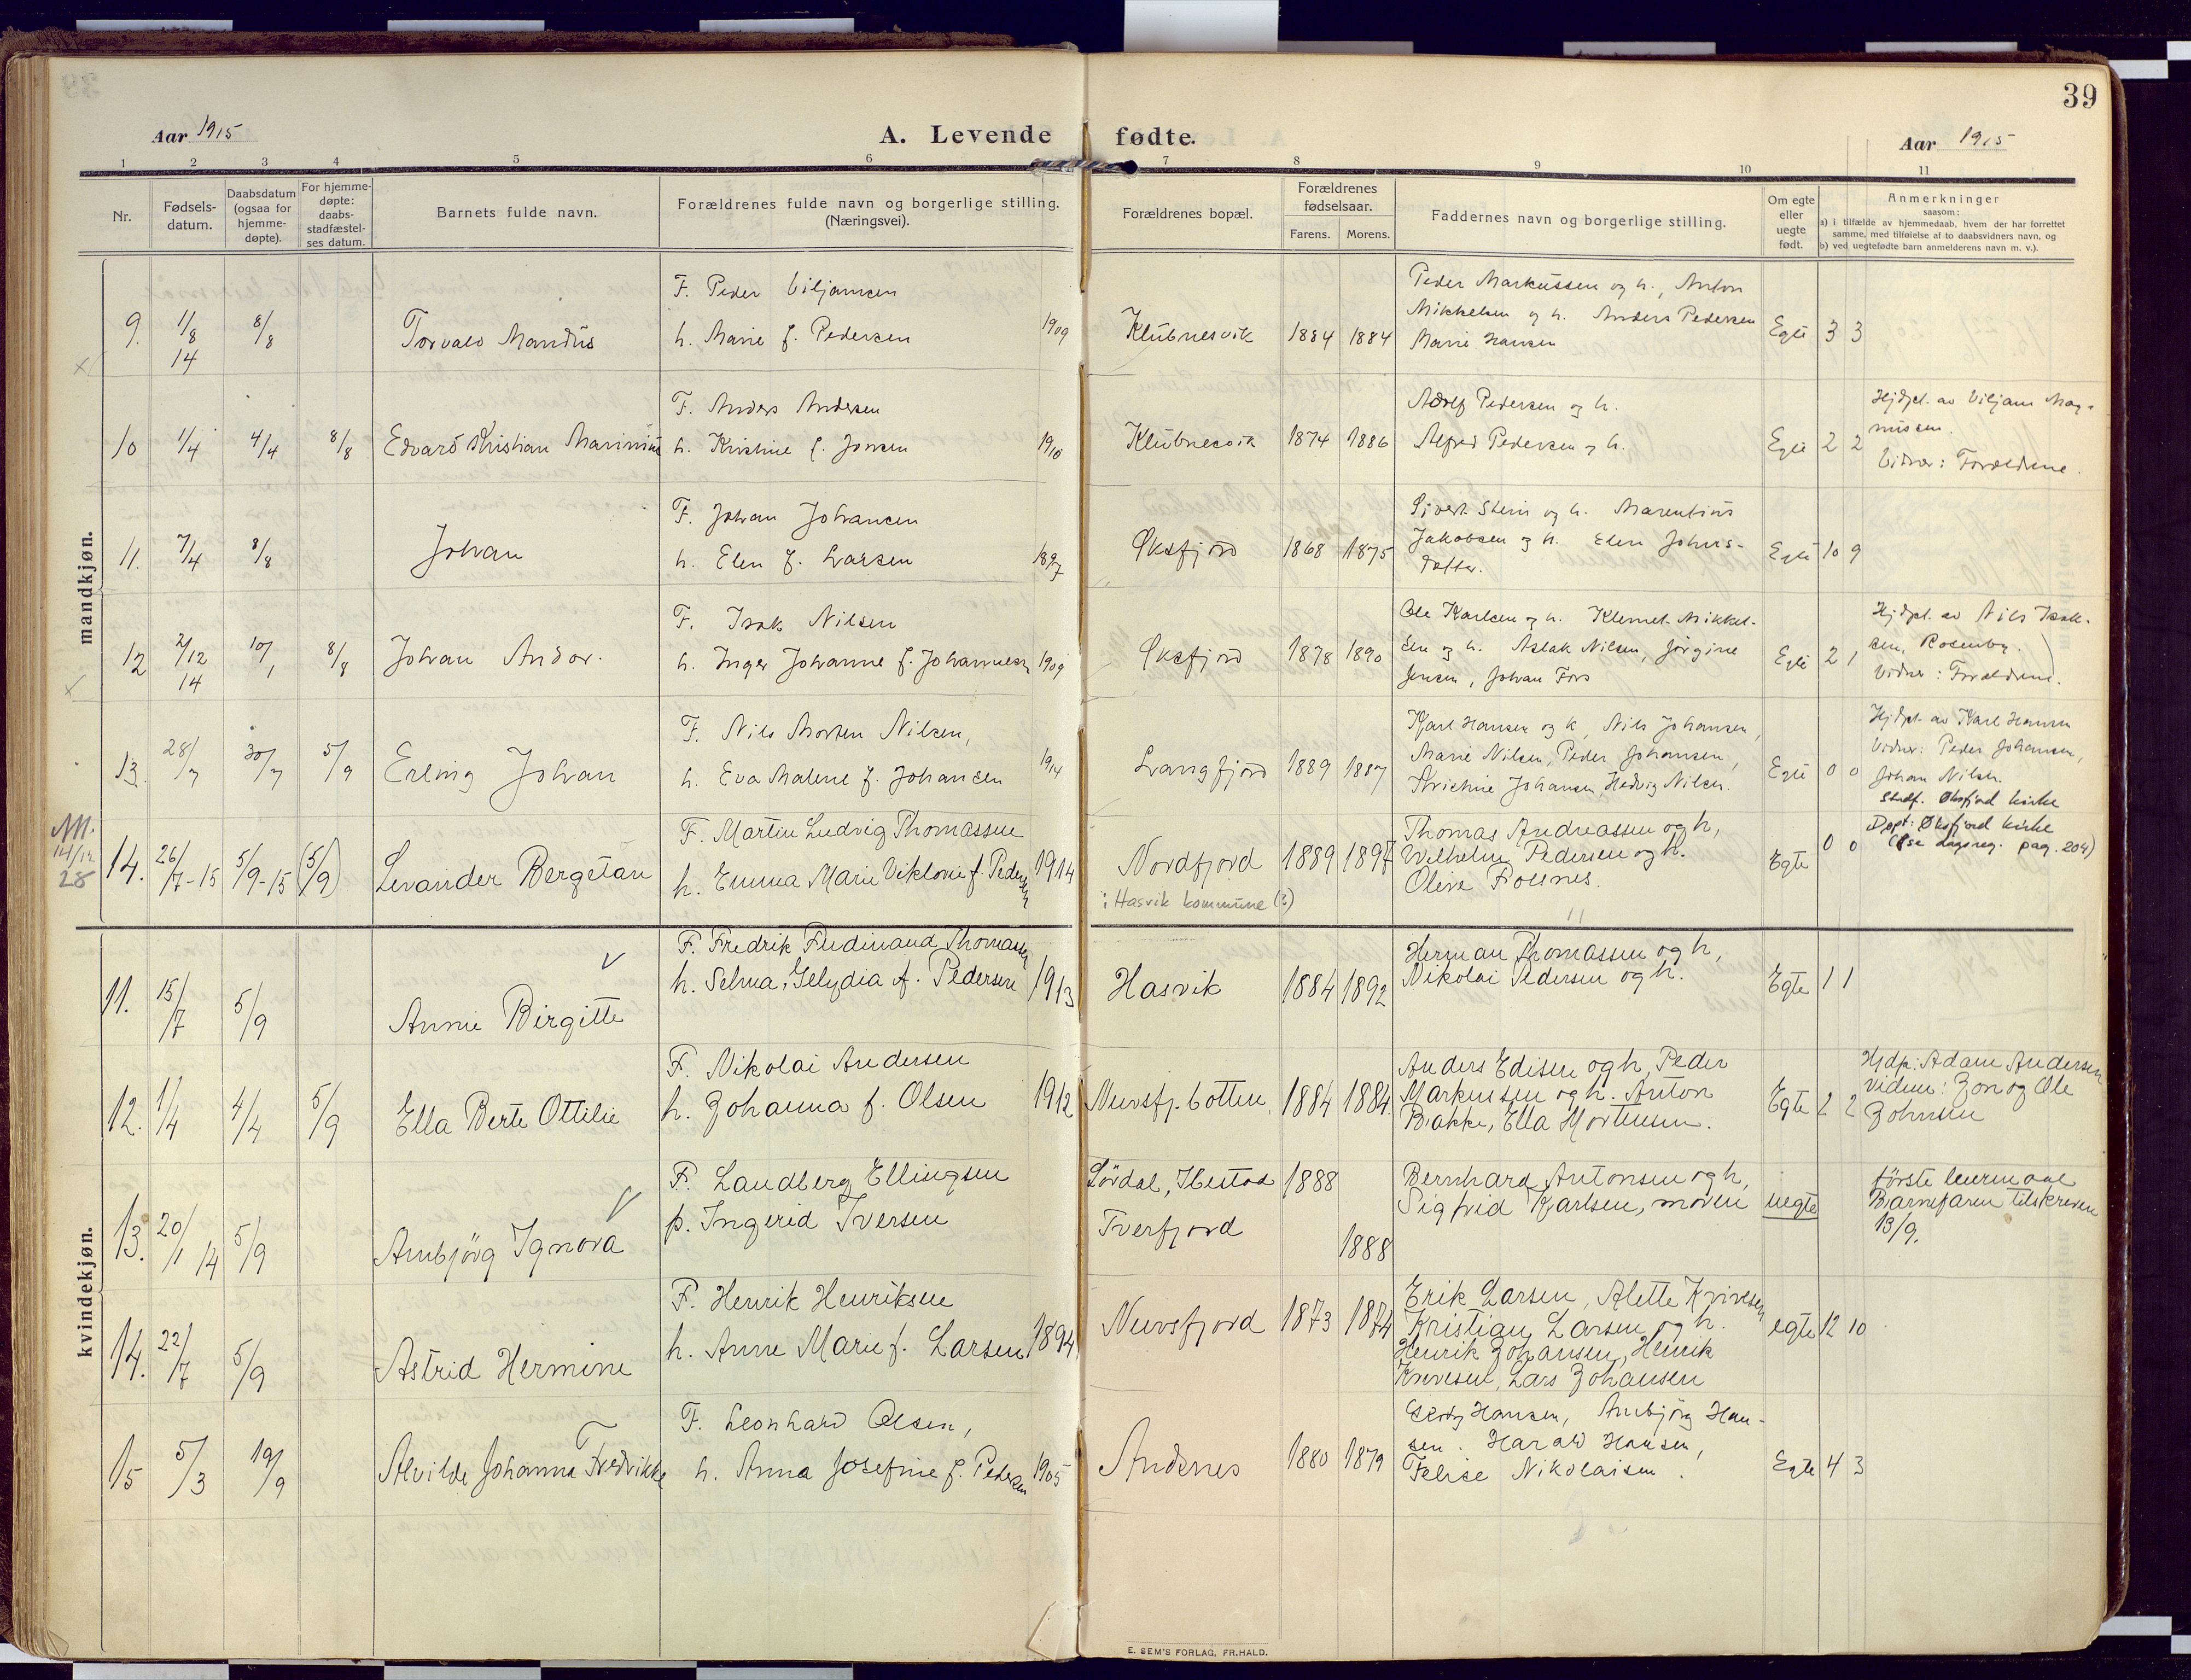 39
Aar 1915
A. Levende fødte.
Aar 1915
1 2 3 4 5 6 7 8 9 10 11
Nr.
Fødsels-
datum.
Daabsdatum
(ogsaa for
hjemme-
døpte).
For hjemme-
døpte:
daabs-
stadfæstel-
ses datum.
Barnets fulde navn.
Forældrenes fulde navn og borgerlige stilling.
(Næringsvei).
Forældrenes bopæl.
Forældrenes
fødselsaar.
Farens. Morens.
Faddernes navn og borgerlige stilling.
Om egte
eller
uegte
født.
Anmerkninger
saasom:
a) i tilfælde av hjemmedaab, hvem der har forrettet
samme, med tilføielse af to daabsvidners navn, og
b) ved uegtefødte barn anmelderens navn m. v.).
mandkjøn.
9. 1/8 14 8/8 Torvald Mandus
F. Peder Viljamsen
h. Marie f. Pedersen 1909
Klubnesvik 1884 1884
Peder Markussen og h., Anton
Mikkelsen og h. Anders Pedersen
Marie Hansen
Egte 3 3
10 1/4 4/4 8/8 Edvard Kristian Marinius
F. Anders Andersen
h. Kristine f. Jonsen 1910
Klubnesvik 1874 1886
Adolf Pedersen og h.
Alfred Pedersen og h.
Egte 2 2
Hjdpt. av Viljam Mag-
nussen.
Vidner: Forældrene.
11. 7/4 8/8 Johan
F. Johan Johansen
h. Elen f. Larsen 1897
Øksfjord 1868 1875
Sivert Stein og h. Marentius
Jakobsen og h. Elen Johns-
datter.
Egte 10 9
12 2/12 14 10/1 8/8 Johan Andor.
F. Isak Nilsen
h. Inger Johanne f. Johannesen 1909
Øksfjord 1878 1890
Ole Karlsen og h. Klemet Mikkel-
sen og h. Aslak Nilsen, Jørgine
Jensen, Johan Fors
Egte 2 1
Hjdpt. av Nils Isak-
sen, Rosenby.
Vidner: Forældrene.
13. 28/7 30/7 5/9 Erling Johan
F. Nils Morten Nilsen,
h. Eva Malene f. Johansen 1914
Langfjord 1889 1887
Karl Hansen og h, Nils Johansen,
Marie Nilsen, Peder Johansen,
Kristine Johansen, Hedvig Nilsen.
Egte 0 0
Hjdpt. av Karl Hansen
Vidner: Peder Johansen,
Johan Nilsen.
Stadf. Øksfjord kirke
14/12
28
14. 26/7-15 5/9-15 (5/9) Levander Bergetan
F. Martin Ludvig Thomassen
h. Emma Marie Viktorie f. Pedersen 1914
Nordfjord 1889 1897
i Hasvik kommune (?)
Thomas Andreassen og h,
Wilhelm Pedersen og h.
Olive Folines.
Egte 0 0
Døpt: Øksfjord kirke
(se dagreg. pag. 204)
kvindekjøn.
11. 15/7 5/9 Annie Birgitte
F. Fredrik Ferdinand Thomassen
h. Selma, Gelydia f. Pedersen 1913
Hasvik 1884 1892
Herman Thomassen og h,
Nikolai Pedersen og h.
Egte 1 1
12. 1/4 4/4 5/9 Ella Berte Ottilie
F. Nikolai Andersen
h. Johanna f. Olsen 1912
Nuvsfj. botten 1884 1884
Anders Edisen og h, Peder
Markussen og h. Anton
Bakke, Ella Mortensen.
Egte 2 2
Hjdp: Adam Andersen
Vidner: Jon og Ole
Johnsen
13. 20/1 14 5/9 Arnbjörg Ignora
F. Landberg Ellingsen
p. Ingerid Iversen
Sördal, Ibestad 1888
Tverfjord 1888
Bernhard Antonsen og h,
Sigfrid Karlsen, moren
uegte
förste leiermaal
Barnefaren tilskreven
13/9.
14. 22/7 5/9 Astrid Hermine
F. Henrik Henriksen
h. Anne Marie f. Larsen 1894
Nuvsfjord 1873 1874
Erik Larsen, Alette Knivesen
Kristian Larsen og h.
Henrik Johansen, Henrik
Knivesen, Lars Johansen
egte 12 10
15 5/3 19/9 Alvilde Johanna Fredrikke
F. Leonhard Olsen,
h. Anna Josefine f. Pedersen 1905
Andsnes 1880 1879
Hansen, Arnbjörg Han-
sen. Harald Hansen,
Felise Nikolaisen.
Egte 4 3
E. SEM'S FORLAG, FR.HALD.